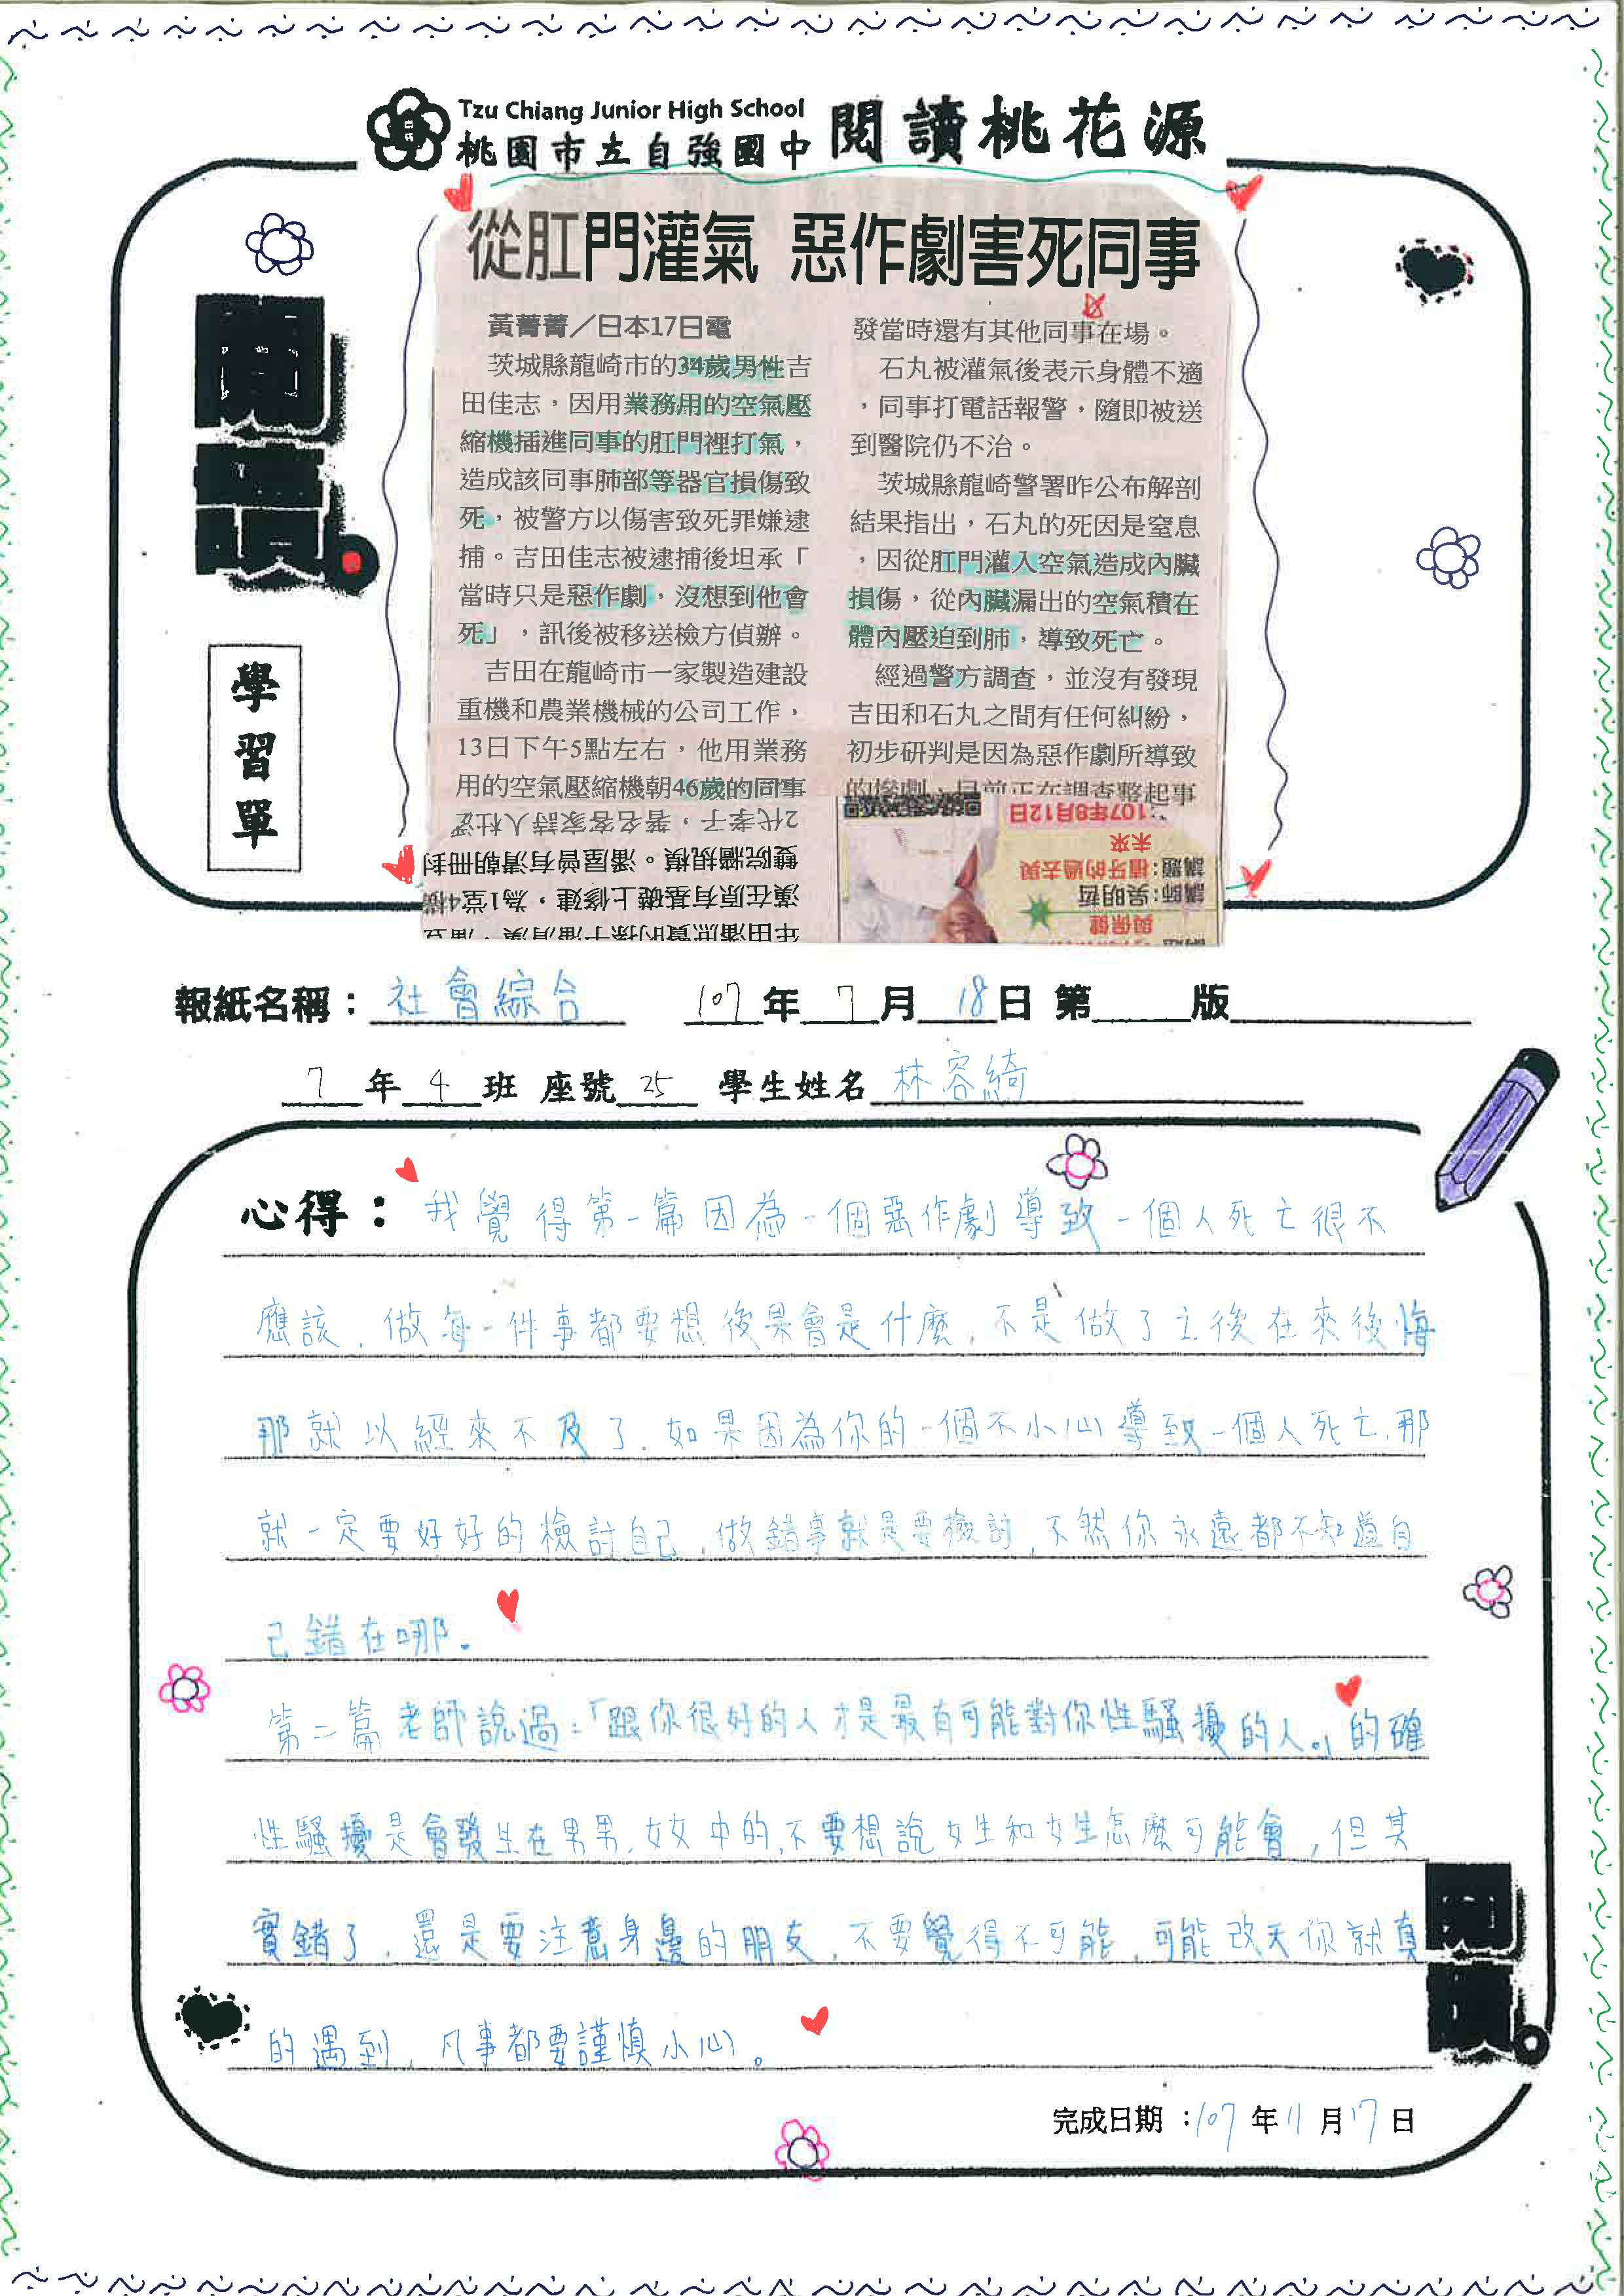 Tzu Chiang Junior High School
桃園市立自強國中 閱讀桃花源
閱讀
學習單
從肛門灌氣 惡作劇害死同事
黃菁菁／日本17日電
茨城縣龍崎市的34歲男性吉
田佳志，因用業務用的空氣壓
縮機插進同事的肛門裡打氣，
造成該同事肺部等器官損傷致
死，被警方以傷害致死罪嫌逮
捕。吉田佳志被逮捕後坦承「
當時只是惡作劇，沒想到他會
死」，訊後被移送檢方偵辦。
吉田在龍崎市一家製造建設
重機和農業機械的公司工作，
13日下午5點左右，他用業務
用的空氣壓縮機朝46歲的同事
發當時還有其他同事在場。
石丸被灌氣後表示身體不適
，同事打電話報警，隨即被送
到醫院仍不治。
茨城縣龍崎警署昨公布解剖
結果指出，石丸的死因是窒息
，因從肛門灌入空氣造成內臟
損傷，從內臟漏出的空氣積在
體內壓迫到肺，導致死亡。
經過警方調查，並沒有發現
吉田和石丸之間有任何糾紛，
初步研判是因為惡作劇所導致
的慘劇，目前正在調查整起事
漢在原有基礎上修建，為1堂4橫
雙院牆規模。潘屋曾有清朝冊封
2代孝子，著名客家詩人杜潘
與保健
講師:吳明哲
講題:植牙的過去與
未來
107年8月12日
報紙名稱：社會綜合 107年7月18日 第 版
7年4班 座號25 學生姓名林容綺
心得：我覺得第一篇因為一個惡作劇導致一個人死亡很不
應該，做每一件事都要想後果會是什麼，不是做了之後在來後悔
那就以經來不及了，如果因為你的一個不小心導致一個人死亡，那
就一定要好好的檢討自己，做錯事就是要檢討，不然你永遠都不知道自
己錯在哪。
第二篇老師說過：「跟你很好的人才是最有可能對你性騷擾的人。」的確
性騷擾是會發生在男男，女女中的，不要想說女生和女生怎麼可能會，但其
實錯了，還是要注意身邊的朋友，不要覺得不可能，可能改天你就真
的遇到，凡事都要謹慎小心。
閱讀
完成日期：107年11月17日